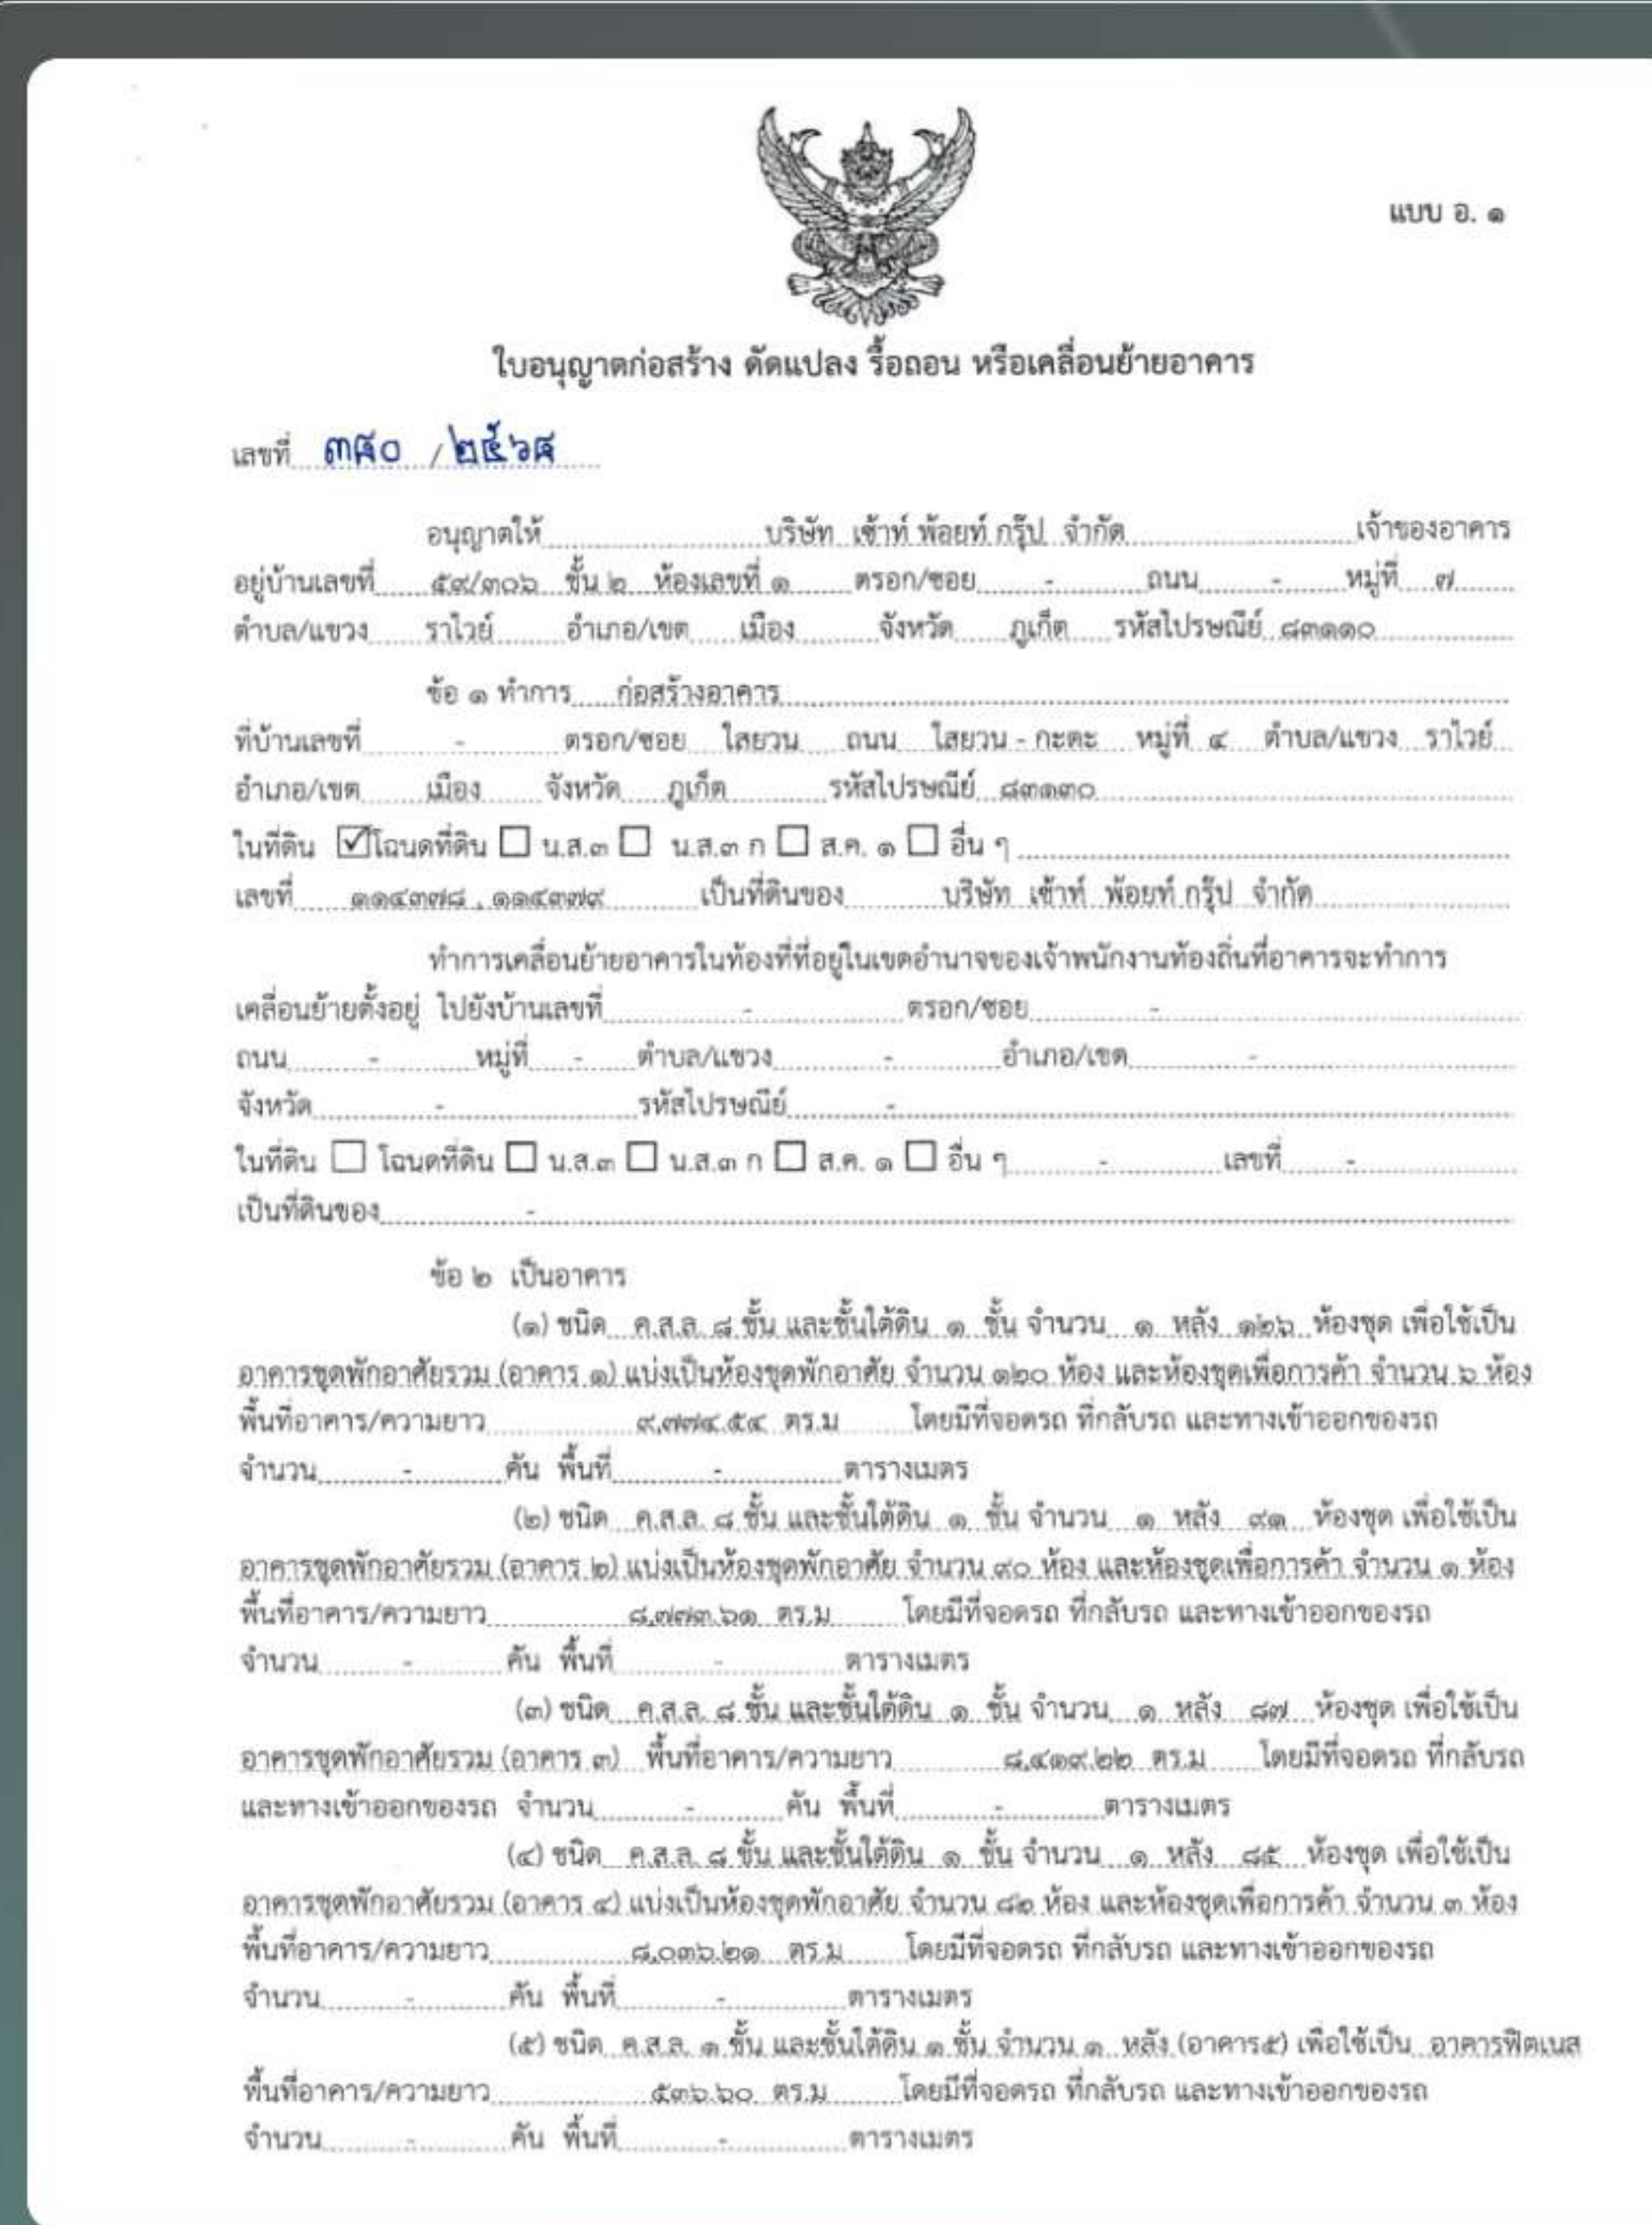 แบบ อ. ๑
ใบอนุญาตก่อสร้าง ดัดแปลง รื้อถอน หรือเคลื่อนย้ายอาคาร
เลขที่ ๓๘๐ / ๒๕๖๘
อนุญาตให้ บริษัท เซ้าท์ พ้อยท์ กรุ๊ป จำกัด เจ้าของอาคาร
อยู่บ้านเลขที่ ๕๙/๓๐๖ ชั้น ๒ ห้องเลขที่ ๑ ตรอก/ซอย - ถนน - หมู่ที่ ๗
ตำบล/แขวง ราไวย์ อำเภอ/เขต เมือง จังหวัด ภูเก็ต รหัสไปรษณีย์ ๘๓๑๑๐
ข้อ ๑ ทำการ ก่อสร้างอาคาร
ที่บ้านเลขที่ - ตรอก/ซอย ใสยวน ถนน ใสยวน - กะตะ หมู่ที่ ๔ ตำบล/แขวง ราไวย์
อำเภอ/เขต เมือง จังหวัด ภูเก็ต รหัสไปรษณีย์ ๘๓๑๓๐
ในที่ดิน ☑ โฉนดที่ดิน ☐ น.ส.๓ ☐ น.ส.๓ ก ☐ ส.ค. ๑ ☐ อื่น ๆ
เลขที่ ๑๑๔๓๗๘ , ๑๑๔๓๗๙ เป็นที่ดินของ บริษัท เซ้าท์ พ้อยท์ กรุ๊ป จำกัด
ทำการเคลื่อนย้ายอาคารในท้องที่ที่อยู่ในเขตอำนาจของเจ้าพนักงานท้องถิ่นที่อาคารจะทำการ
เคลื่อนย้ายตั้งอยู่ ไปยังบ้านเลขที่ - ตรอก/ซอย -
ถนน - หมู่ที่ - ตำบล/แขวง - อำเภอ/เขต -
จังหวัด - รหัสไปรษณีย์ -
ในที่ดิน ☐ โฉนดที่ดิน ☐ น.ส.๓ ☐ น.ส.๓ ก ☐ ส.ค. ๑ ☐ อื่น ๆ - เลขที่ -
เป็นที่ดินของ -
ข้อ ๒ เป็นอาคาร
(๑) ชนิด ค.ส.ล. ๘ ชั้น และชั้นใต้ดิน ๑ ชั้น จำนวน ๑ หลัง ๑๒๖ ห้องชุด เพื่อใช้เป็น
อาคารชุดพักอาศัยรวม (อาคาร ๑) แบ่งเป็นห้องชุดพักอาศัย จำนวน ๑๒๐ ห้อง และห้องชุดเพื่อการค้า จำนวน ๖ ห้อง
พื้นที่อาคาร/ความยาว ๙,๗๗๔.๕๔ ตร.ม โดยมีที่จอดรถ ที่กลับรถ และทางเข้าออกของรถ
จำนวน - คัน พื้นที่ - ตารางเมตร
(๒) ชนิด ค.ส.ล. ๘ ชั้น และชั้นใต้ดิน ๑ ชั้น จำนวน ๑ หลัง ๙๑ ห้องชุด เพื่อใช้เป็น
อาคารชุดพักอาศัยรวม (อาคาร ๒) แบ่งเป็นห้องชุดพักอาศัย จำนวน ๙๐ ห้อง และห้องชุดเพื่อการค้า จำนวน ๑ ห้อง
พื้นที่อาคาร/ความยาว ๘,๗๗๓.๖๑ ตร.ม โดยมีที่จอดรถ ที่กลับรถ และทางเข้าออกของรถ
จำนวน - คัน พื้นที่ - ตารางเมตร
(๓) ชนิด ค.ส.ล. ๘ ชั้น และชั้นใต้ดิน ๑ ชั้น จำนวน ๑ หลัง ๘๗ ห้องชุด เพื่อใช้เป็น
อาคารชุดพักอาศัยรวม (อาคาร ๓) พื้นที่อาคาร/ความยาว ๘,๔๑๙.๒๒ ตร.ม โดยมีที่จอดรถ ที่กลับรถ
และทางเข้าออกของรถ จำนวน - คัน พื้นที่ - ตารางเมตร
(๔) ชนิด ค.ส.ล. ๘ ชั้น และชั้นใต้ดิน ๑ ชั้น จำนวน ๑ หลัง ๘๕ ห้องชุด เพื่อใช้เป็น
อาคารชุดพักอาศัยรวม (อาคาร ๔) แบ่งเป็นห้องชุดพักอาศัย จำนวน ๘๒ ห้อง และห้องชุดเพื่อการค้า จำนวน ๓ ห้อง
พื้นที่อาคาร/ความยาว ๘,๐๓๖.๒๑ ตร.ม โดยมีที่จอดรถ ที่กลับรถ และทางเข้าออกของรถ
จำนวน - คัน พื้นที่ - ตารางเมตร
(๕) ชนิด ค.ส.ล. ๑ ชั้น และชั้นใต้ดิน ๑ ชั้น จำนวน ๑ หลัง (อาคาร๕) เพื่อใช้เป็น อาคารฟิตเนส
พื้นที่อาคาร/ความยาว ๕๓๖.๖๐ ตร.ม โดยมีที่จอดรถ ที่กลับรถ และทางเข้าออกของรถ
จำนวน - คัน พื้นที่ - ตารางเมตร